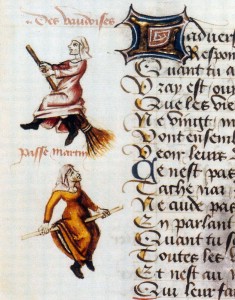 Des vaudoises
passe martin
Ladvers
Respon
Quant tu a
Vray est qui
Que les vie
Ne vingt m
Vont ensemb
Veoir leurs
Ce nest pas
Cache nar
Ne aude pas
En parlant
Quant tu s
Toutes les
Et nest au
Qui leur fa